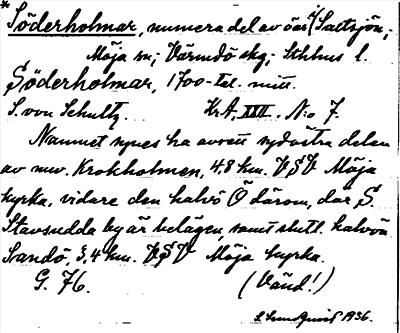 * Söderholmar, numera del av öar i Saltsjön;
Möja sn; Värmdö skg; Sthlms l.
Söderholmar, 1700-tal. mitt.
S. von Schultz. Kr.A, XVII. No 7.
Namnet synes ha avsett sydöstra delen
av nuv. Krokholmen, 4,8 km. VSV Möja
kyrka, vidare den halvö Ö därom, där S.
Stavsudda by är belägen, samt slutl. halvön
Sandö, 3,4 km. VSV Möja kyrka.
G. 76. (Vänd!)
1936.